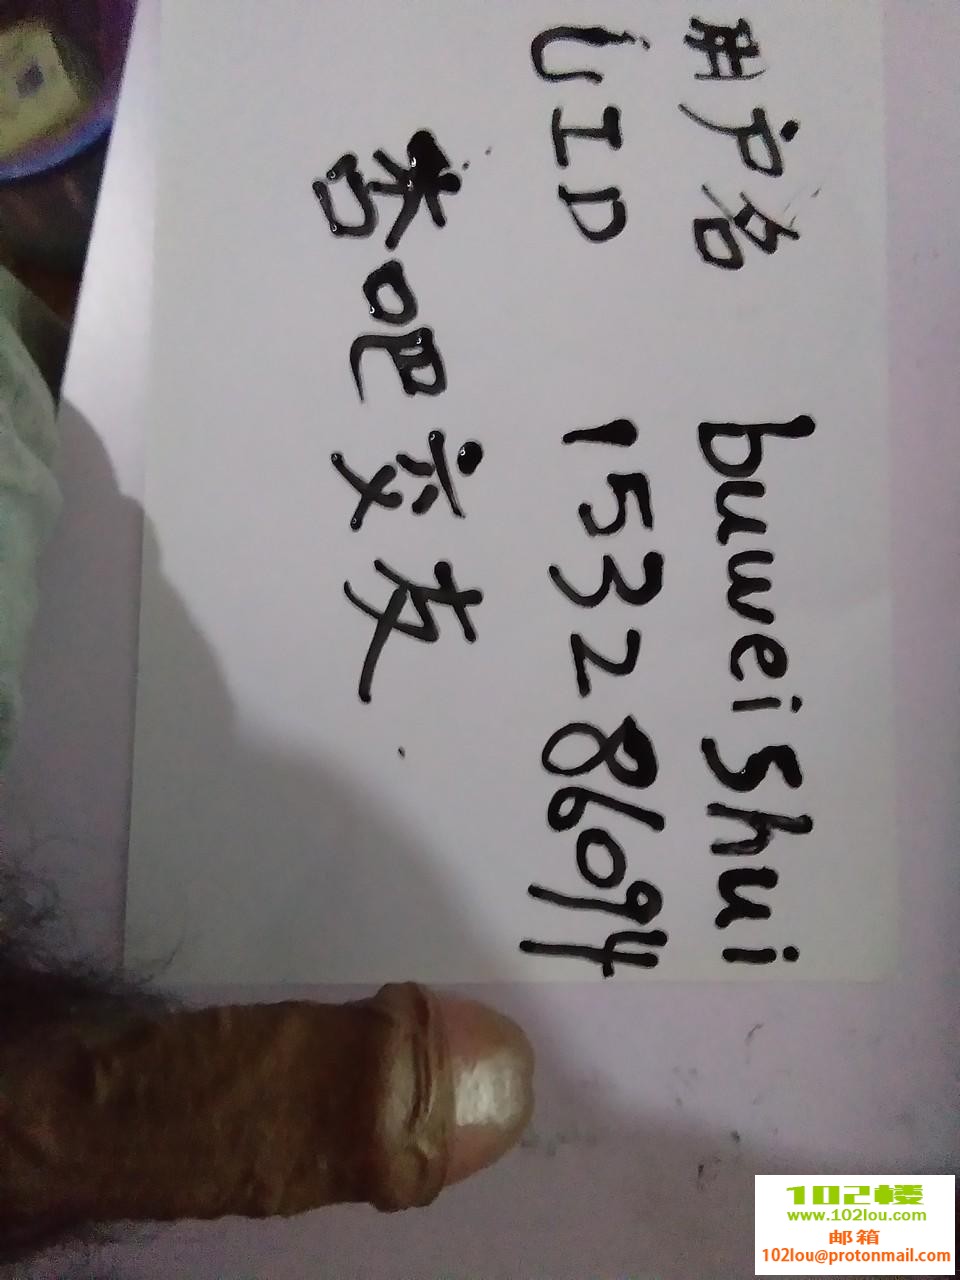 用户名 buweishui
UID 153286094
春吧交友
102楼
www.102lou.com
邮箱
102lou@protonmail.com